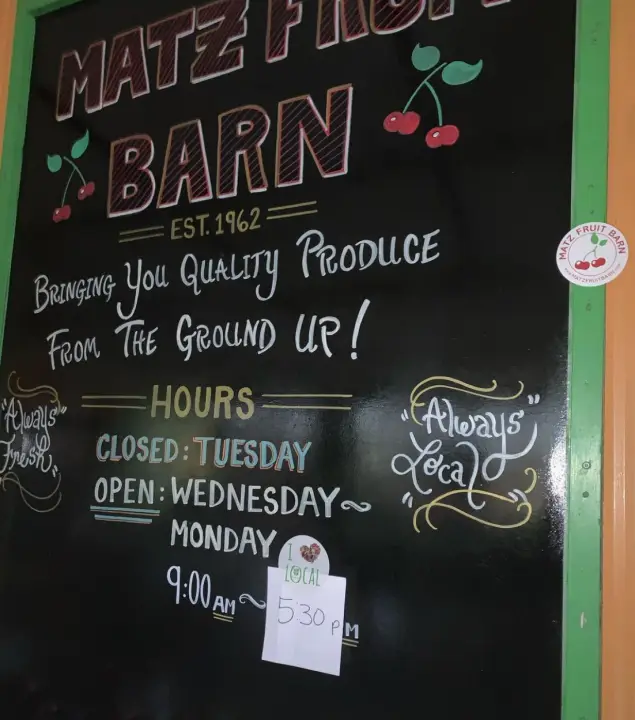 MATZ FRUIT
BARN
EST. 1962
BRINGING YOU QUALITY PRODUCE
FROM THE GROUND UP!
HOURS
CLOSED: TUESDAY
OPEN: WEDNESDAY~
MONDAY
9:00 AM ~ 5:30 PM
I
LOCAL
"Always
Fresh"
"Always
Local"
MATZ FRUIT BARN
www.MATZFRUITBARN.com